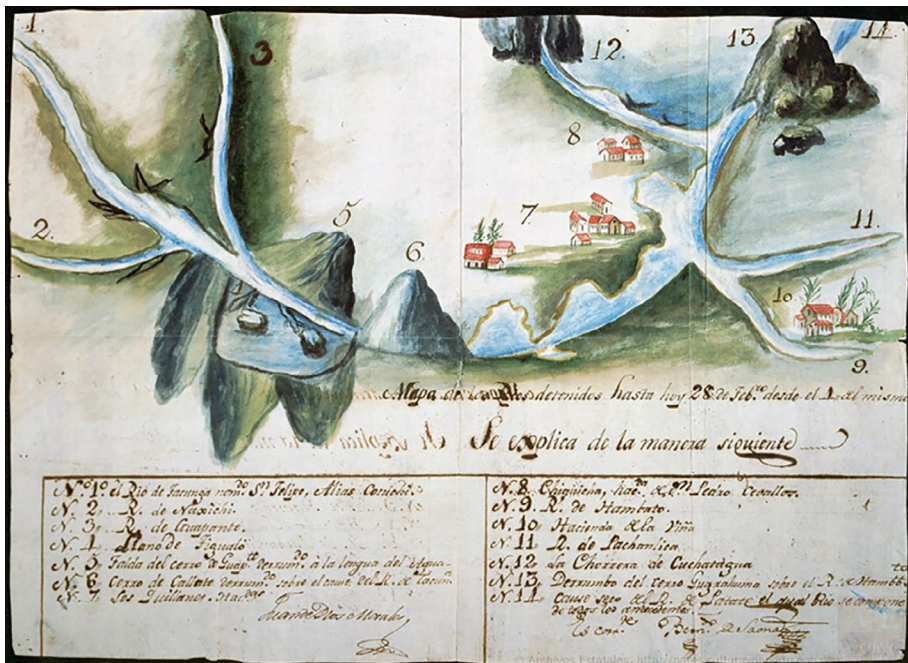 1.
2.
3
5
6.
7
8
12.
13.
14.
11.
10.
9.
Mapa de detenidos hasta hoy 28 de Feb.ro desde el 1. al mismo
Se explica de la manera siguiente
N.o 1.o el Rio de Tacunga nom.o S.n Felipe, Alias Coruchi.
N. 2,, R. de Naxichi.
N. 3,, R. de Guapante.
N. 4 Llano de Tigualò
N. 5 Falda del cerro derrum.do à la lengua del Agua
N. 6 Cerro de Callate derrum.do sobre el cause del R. de Tacun.a
N. 7 Los Quillanes
N. 8 Chigüicha, de D.n Pedro Cevallos.
N. 9 R.o de Hambato.
N. 10 Hacienda de la Viña
N. 11 R. de Pachanlica
N. 12 La Chorrera de Cuchatagua
N. 13 Derrumbo del cerro sobre el R. de Hamb.to
N. 14 Cause seco del R. de Patate el qual Rio se compone
de todos los antecedentes.
Es con.de Bern.o
Juan de Dios Morales
© Archivos Estatales,